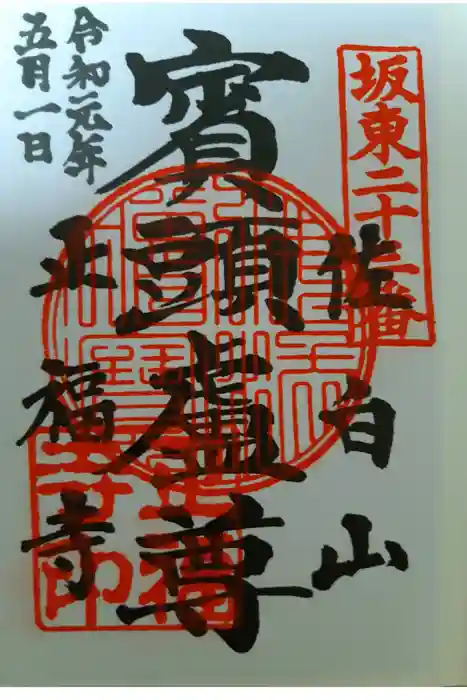 坂東二十三番
佐白山
賓頭盧尊
令和元年
五月一日
正福寺
正福
寺印